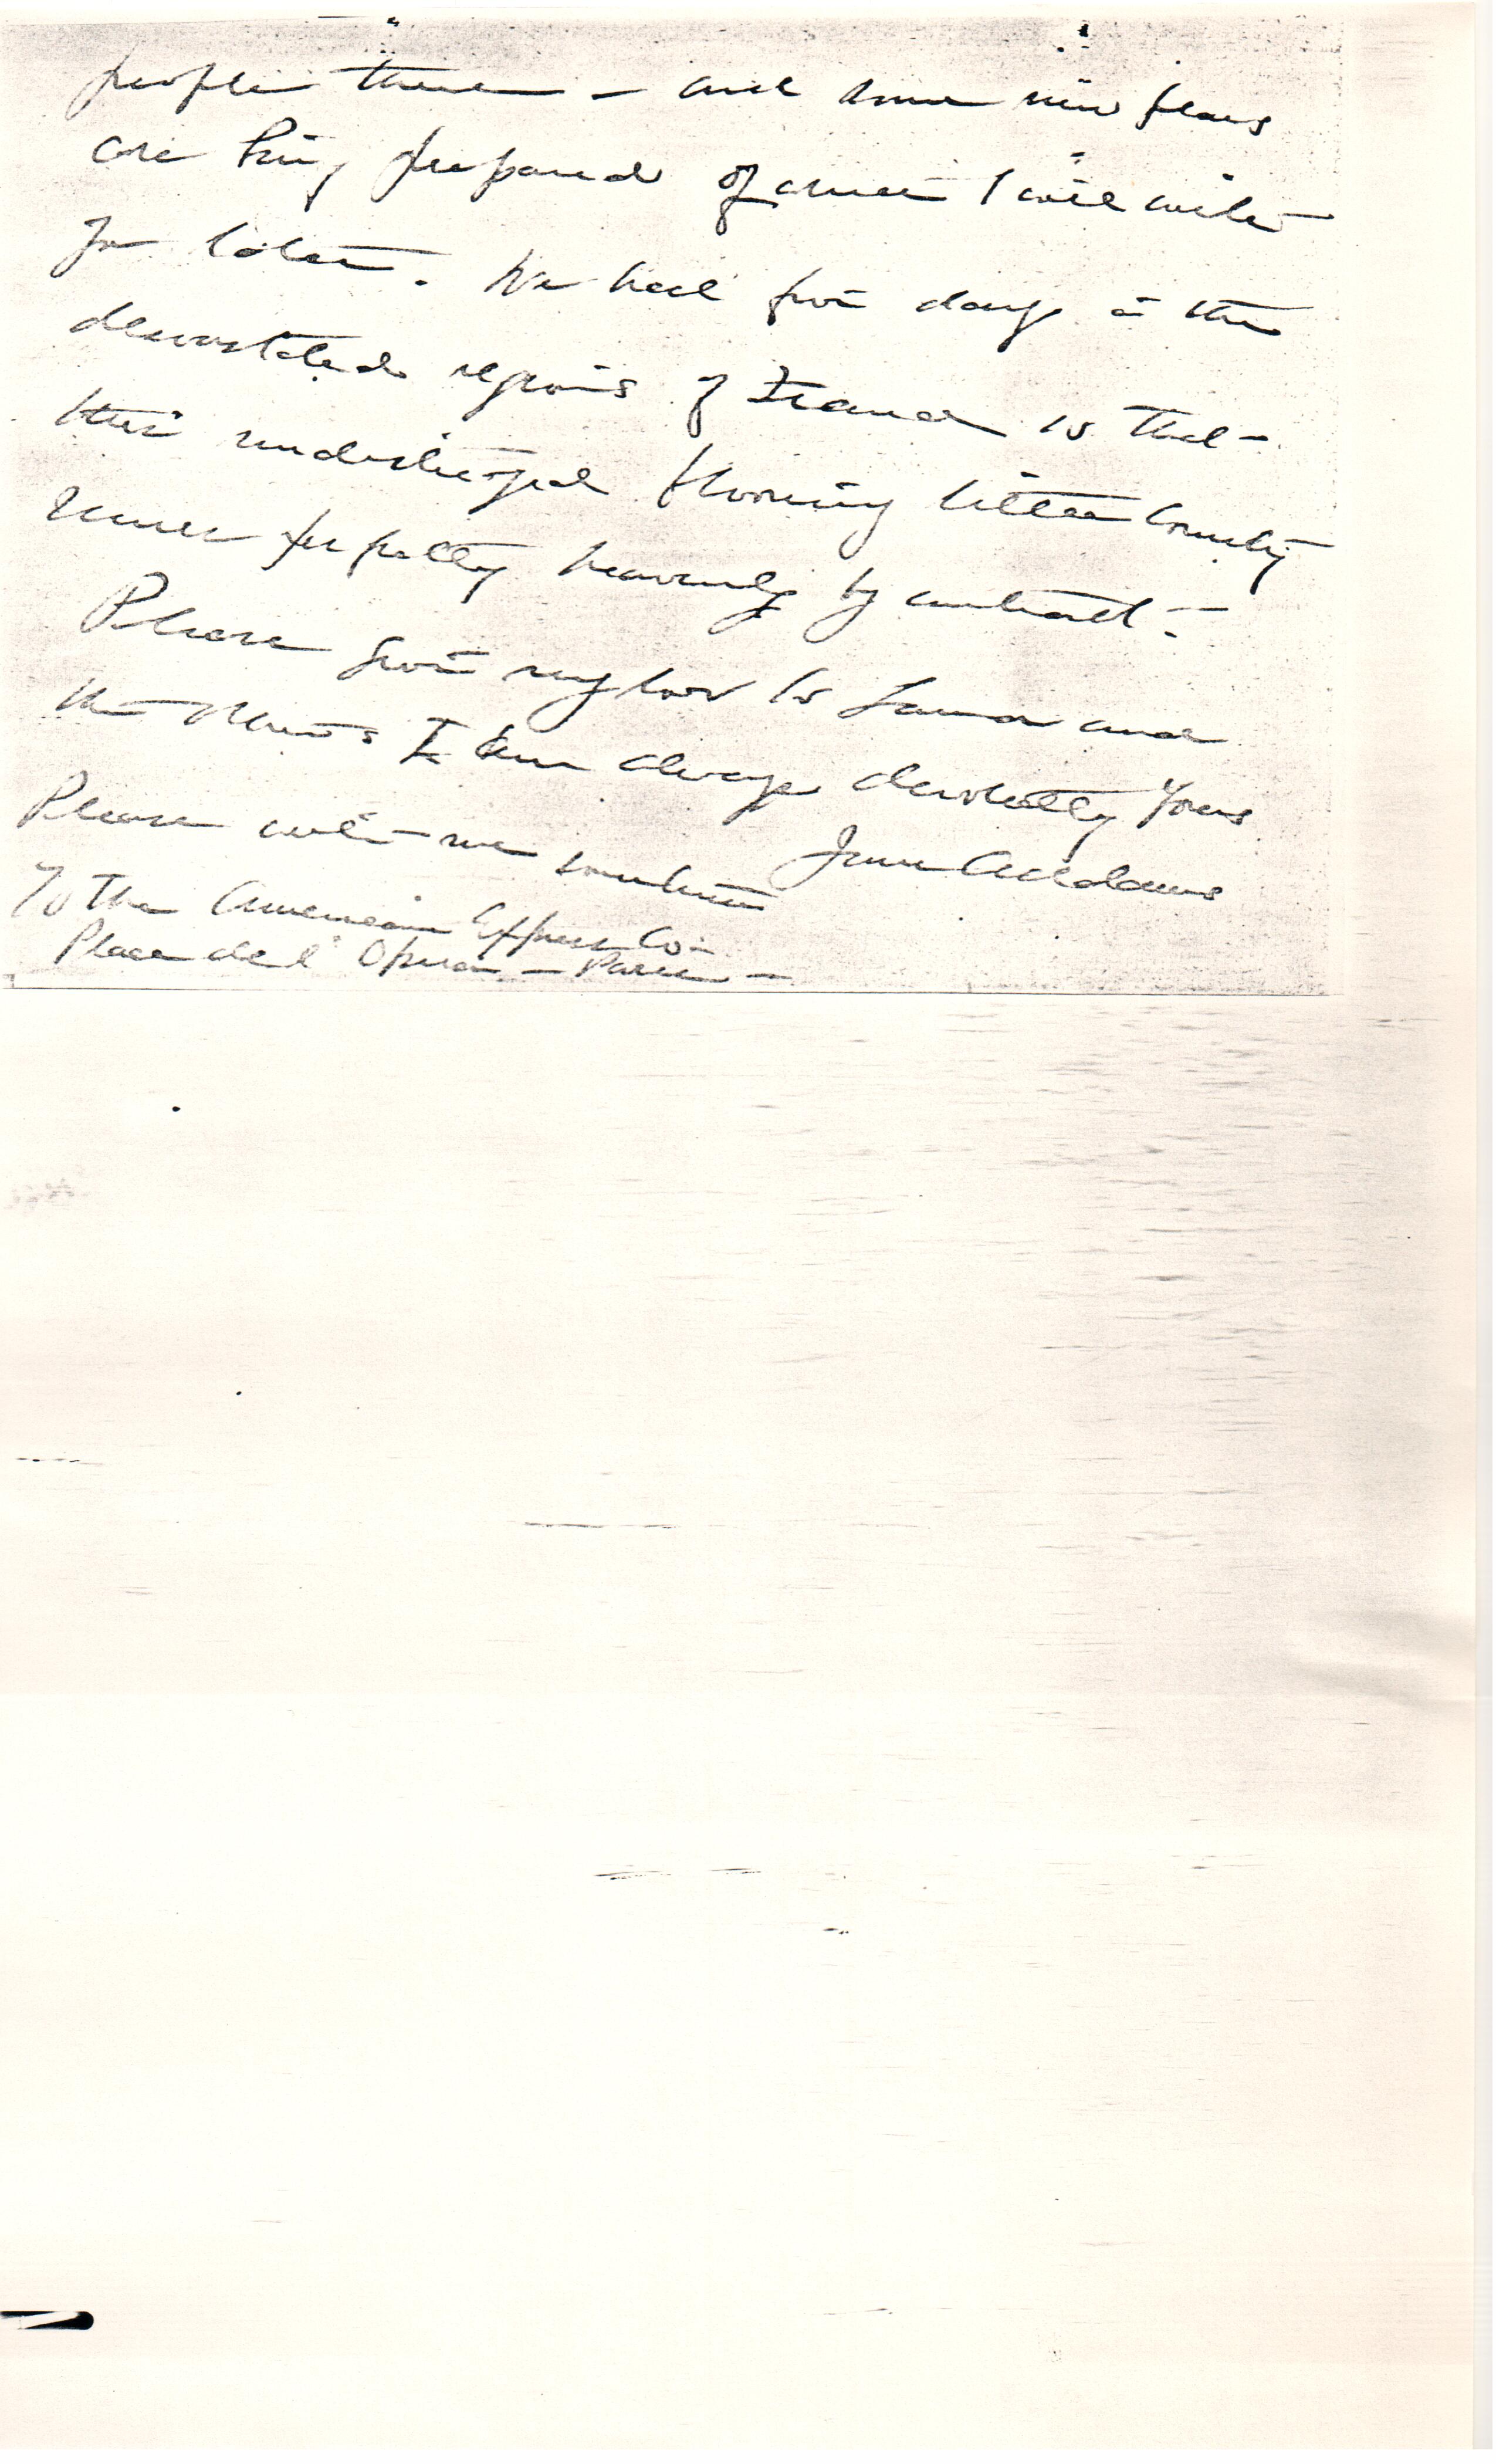 people there – and some new plans
are being prepared of which I will write
you later. We had five days in the
devastated regions of France so that
this undestroyed blooming little country
seems perfectly heavenly by contrast –
Please give my love to and
the I am always devotedly yours
Jane Addams
Please write me sometime
To the American Express Co –
Place de l'Opera – Paris –